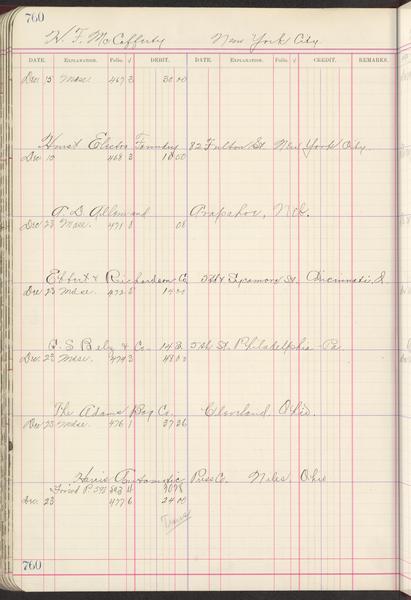 760
W. F. McCafferty New York City
DATE. EXPLANATION. Folio. √ DEBIT. DATE. EXPLANATION. Folio. √ CREDIT. REMARKS.
Dec 15 Mdse. 467 3 30 00
Electro Foundry 82 Fulton St New York City.
Dec 15 468 3 10 00
Arapahoe, Neb.
Dec 23 Mdse. 471 1 08
& Richardson Co 5th & Sycamore St. Cincinnati, O.
Dec 23 Mdse. 472 5 14 00
& Co. 142 5th St. Philadelphia Pa
Dec. 23 Mdse. 474 3 48 00
The Adams Bag Co. Cleveland, Ohio.
Dec 23 Mdse. 476 1 37 26
Harris Automatic Press Co. Niles, Ohio
Forwd P. 592 593 4 30 75
Dec. 23 477 6 24 00
Trans
760